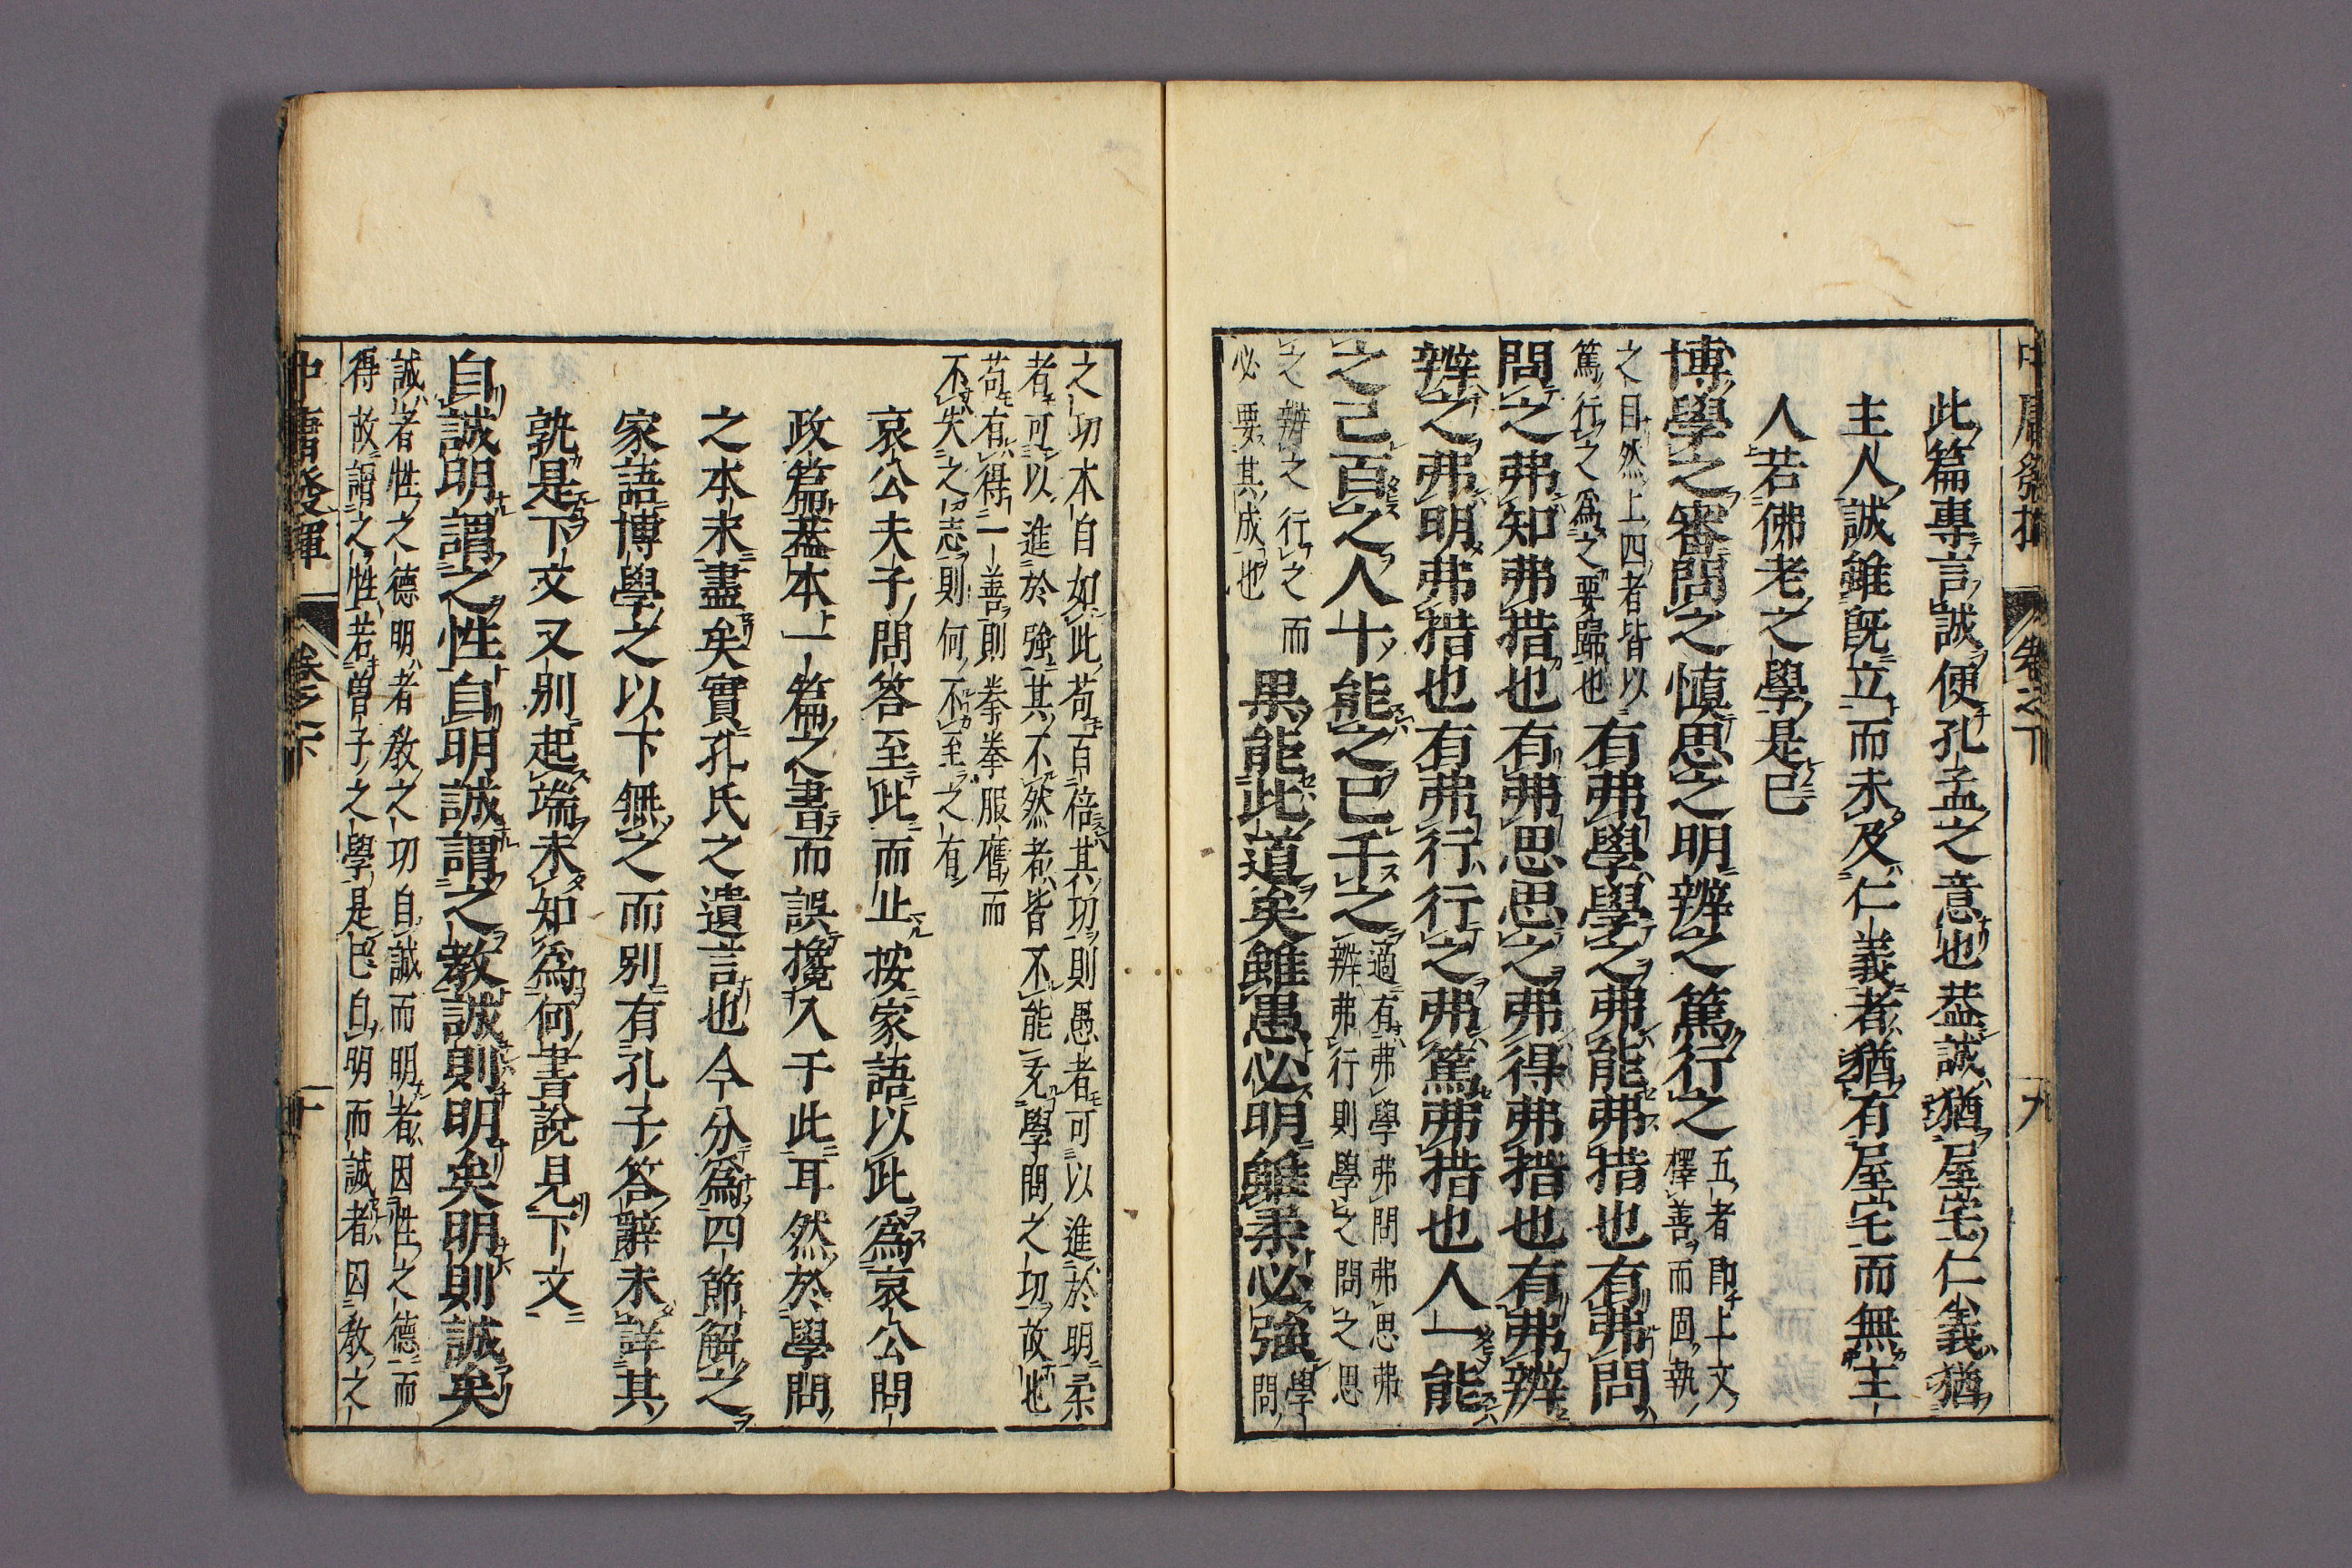 中庸發揮 卷之下 九
此篇專言誠便孔孟之意也葢誠猶屋宅仁義猶
主人誠雖既立而未及仁義者猶有屋宅而無主
人若佛老之學是已
博學之審問之慎思之明辨之篤行之
五者即上文
擇善而固執
之目然上四者皆以
篤行之爲之要歸也
有弗學學之弗能弗措也有弗問
問之弗知弗措也有弗思思之弗得弗措也有弗辨
辨之弗明弗措也有弗行行之弗篤弗措也人一能
之己百之人十能之己千之
適有弗學弗問弗思弗
辨弗行則學之問之思
之辨之行之而
必要其成也
果能此道矣雖愚必明雖柔必強
學
問
之功本自如此苟百倍其功則愚者可以進於明柔
者可以進於強其不然者皆不能充學問之功故也
苟有得一善則拳拳服膺而
不失之志則何不至之有
哀公夫子問答至此而止按家語以此爲哀公問
政篇葢本一篇之書而誤攙入于此耳然於學問
之本末盡矣實孔氏之遺言也今分爲四節解之
家語博學之以下無之而別有孔子答辭未詳其
孰是下文又別起端未知爲何書說見下文
自誠明謂之性自明誠謂之教誠則明矣明則誠矣
誠者性之德明者教之功自誠而明者因性之德而
得故謂之性若曾子之學是已自明而誠者因教之
中庸發揮 卷之下 十